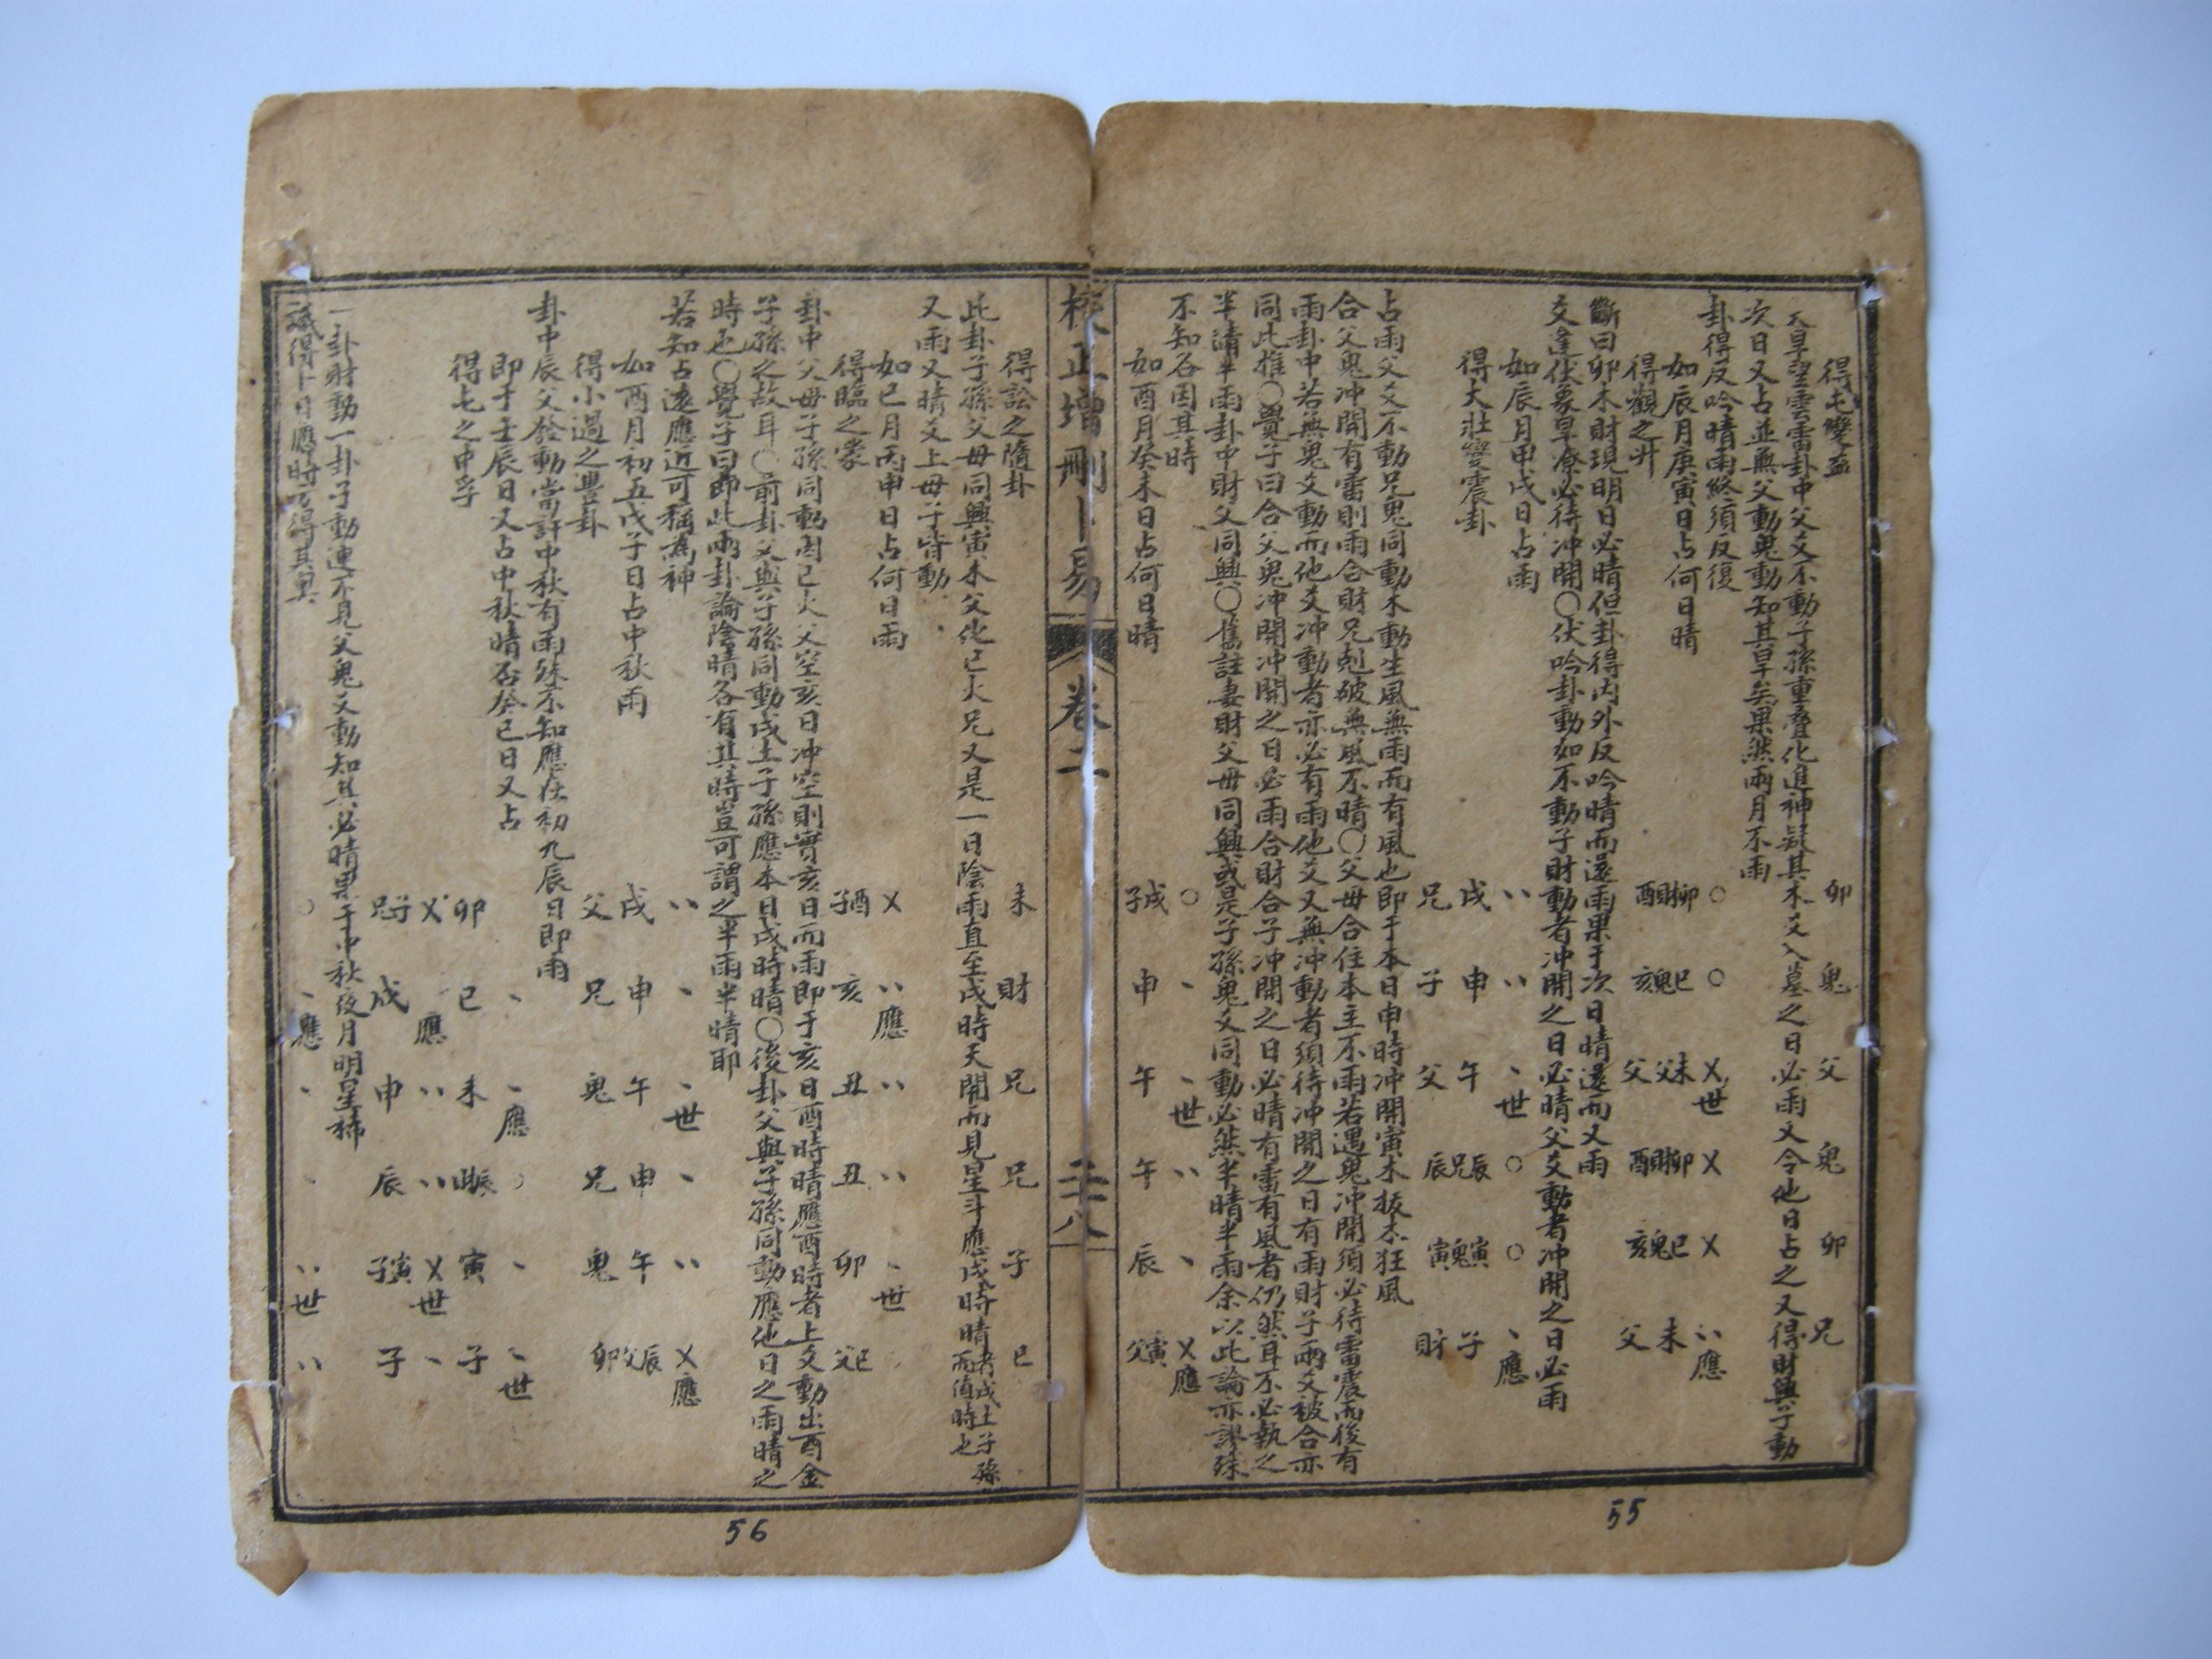 得屯變益
卯 鬼 父 鬼 卯 兄
天旱望雲雷卦中父爻不動子孫重疊化進神疑其未爻入墓之日必雨又今他日占之又得財興子動
次日又占並無父動鬼動知其旱矣果然兩月不雨
卦得反吟晴雨終須反復
○ ○ 乂世 乂 乂 〃應
如辰月庚寅日占何日晴
得觀之升
酉財卯 亥鬼巳 父父未 酉財卯 亥鬼巳 父未
斷曰卯木財現明日必晴但卦得內外反吟晴而還雨果于次日晴還而又雨
爻逢伏象旱潦必待冲開○伏吟卦動如不動子財動者冲開之日必晴父爻動者冲開之日必雨
如辰月甲戌日占雨
〃 〃 、世 ○ ○ 、應
得大壯變震卦
兄戌 子申 父午 辰兄辰 寅鬼寅 財子
占雨父爻不動兄鬼同動木動生風無雨而有風也即于本日申時冲開寅木拔木狂風
合父鬼冲開有雷則雨合財兄尅破無風不晴○父母合住本主不雨若遇鬼冲開須必待雷震而後有
雨卦中若無鬼爻動而他爻冲動者亦必有雨他爻又無冲動者須待冲開之日有雨財子兩爻被合亦
同此推○覺子曰合父鬼冲開冲開之日必雨合財合子冲開之日必晴有雷有風者仍然耳不必執之
半晴半雨卦中財父同興○舊註妻財父母同興或是子孫鬼父同動必然半晴半雨余以此論亦謬殊
不知各因其時
如酉月癸未日占何日晴
○ 、 、世 〃 、 乂應
子戌 申 午 午 辰 父寅
校正增刪卜易
卷二
二十八
得訟之隨卦
未 財 兄 兄 子 巳
此卦子孫父母同興寅木父化巳火兄又是一日陰雨直至戌時天開而見星斗應戌時晴者戌土子孫而值時也
又雨又晴爻上母子皆動
如巳月丙申日占何日雨
得臨之蒙
乂 〃應 〃 〃 、世
子酉 亥 丑 丑 卯 父巳
卦中父母子孫同動因巳火父空亥日冲空則實亥日而雨即于亥日酉時晴應酉時者上爻動出酉金
子孫之故耳○前卦父與子孫同動戌土子孫應本日戌時晴○後卦父與子孫同動應他日之雨晴之
時也○覺子曰即此兩卦論陰晴各有其時豈可謂之半雨半晴耶
若知占遠應近可稱爲神
如酉月初五戌子日占中秋雨
〃 、 、世 、 〃 乂應
得小過之豐卦
父戌 兄申 鬼午 兄申 鬼午 卯父辰
卦中辰父發動當許中秋有雨殊不知應在初九辰日即雨
即于壬辰日又占中秋晴否癸巳日又占
、 、應 ○ 、 、世
得屯之中孚
卯 巳 未 辰 寅 子
乂 應 〃 〃 乂世 、
兄子 戌 申 辰 子寅 子
一卦財動一卦子動連不見父鬼爻動知其必晴果于中秋夜月明星稀
誠得卜日應時方得其奥
○ 、應 、 、 〃世 〃
55
56